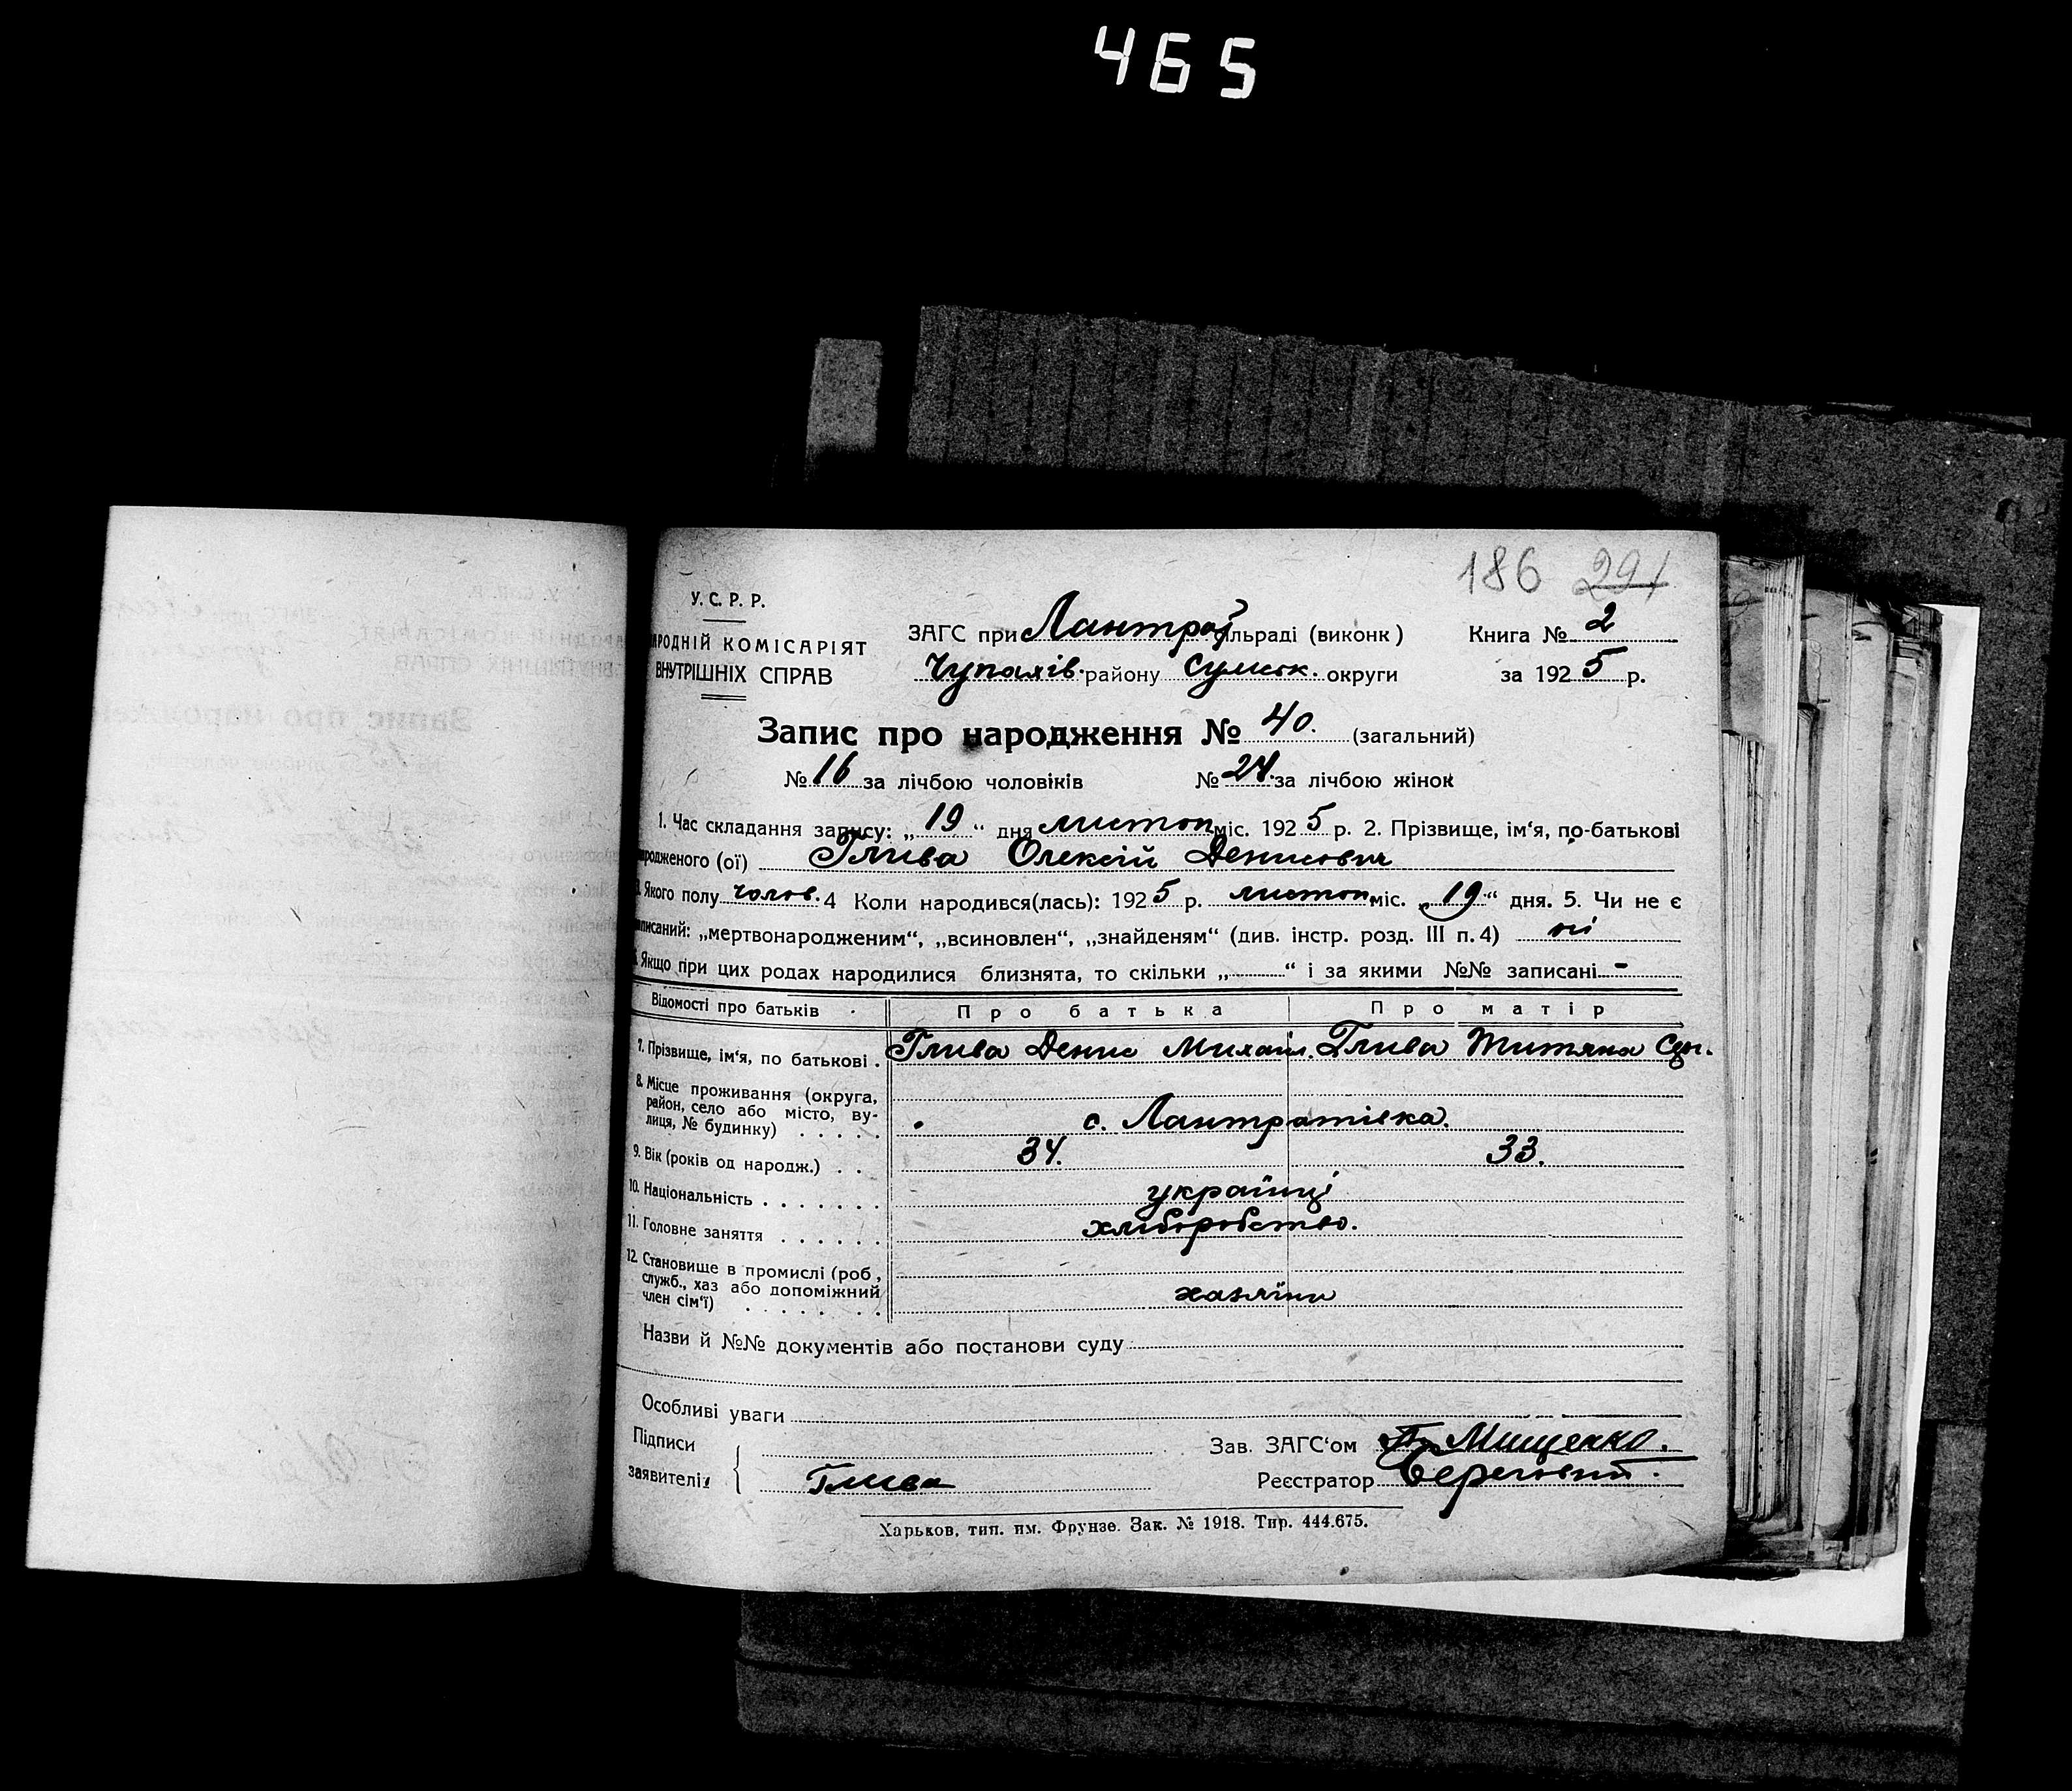 465
186 291
У. С. Р. Р.
АРОДНІЙ КОМІСАРІЯТ
ВНУТРІШНІХ СПРАВ
ЗАГС при Лантрат ільраді (виконк)
Книга № 2
Чупахів. району Сумськ. округи
за 1925 р.
Запис про народження № 40. (загальний)
№ 16 за лічбою чоловіків № 24. за лічбою жінок
1. Час складання запису: „19“ дня листоп міс. 1925 р. 2. Прізвище, ім‘я, по-батькові
родженого (ої) Глива Олексій Денисович
3. Якого полу чолов. 4 Коли народився(лась): 1925 р. листоп міс. „19“ дня. 5. Чи не є
писаний: „мертвонародженим“, „всиновлен“, „знайденям“ (див. інстр. розд. III п. 4) ні
Якщо при цих родах народилися близнята, то скільки „ “ і за якими №№ записані -
Відомості про батьків Про батька Про матір
7. Прізвище, ім‘я, по батькові . Глива Денис Михайл. Глива Титяна
8. Місце проживання (округа,
район, село або місто, ву-
лиця, № будинку) . . . . . с. Лантратівка.
9. Вік (років од народж.) . . 34. 33.
10. Національність . . . . . . . українці
11. Головне заняття . . . . . . хліборобство.
12. Становище в промислі (роб,
служб., хаз або допоміжний
член сім‘ї) . . . . . . . хазяїни
Назви й №№ документів або постанови суду
Особливі уваги
Підписи
заявителів Глива
Зав. ЗАГС‘ом Мищенко.
Реєстратор Береговий.
Харьков, тип. им. Фрунзе. Зак. № 1918. Тир. 444.675.